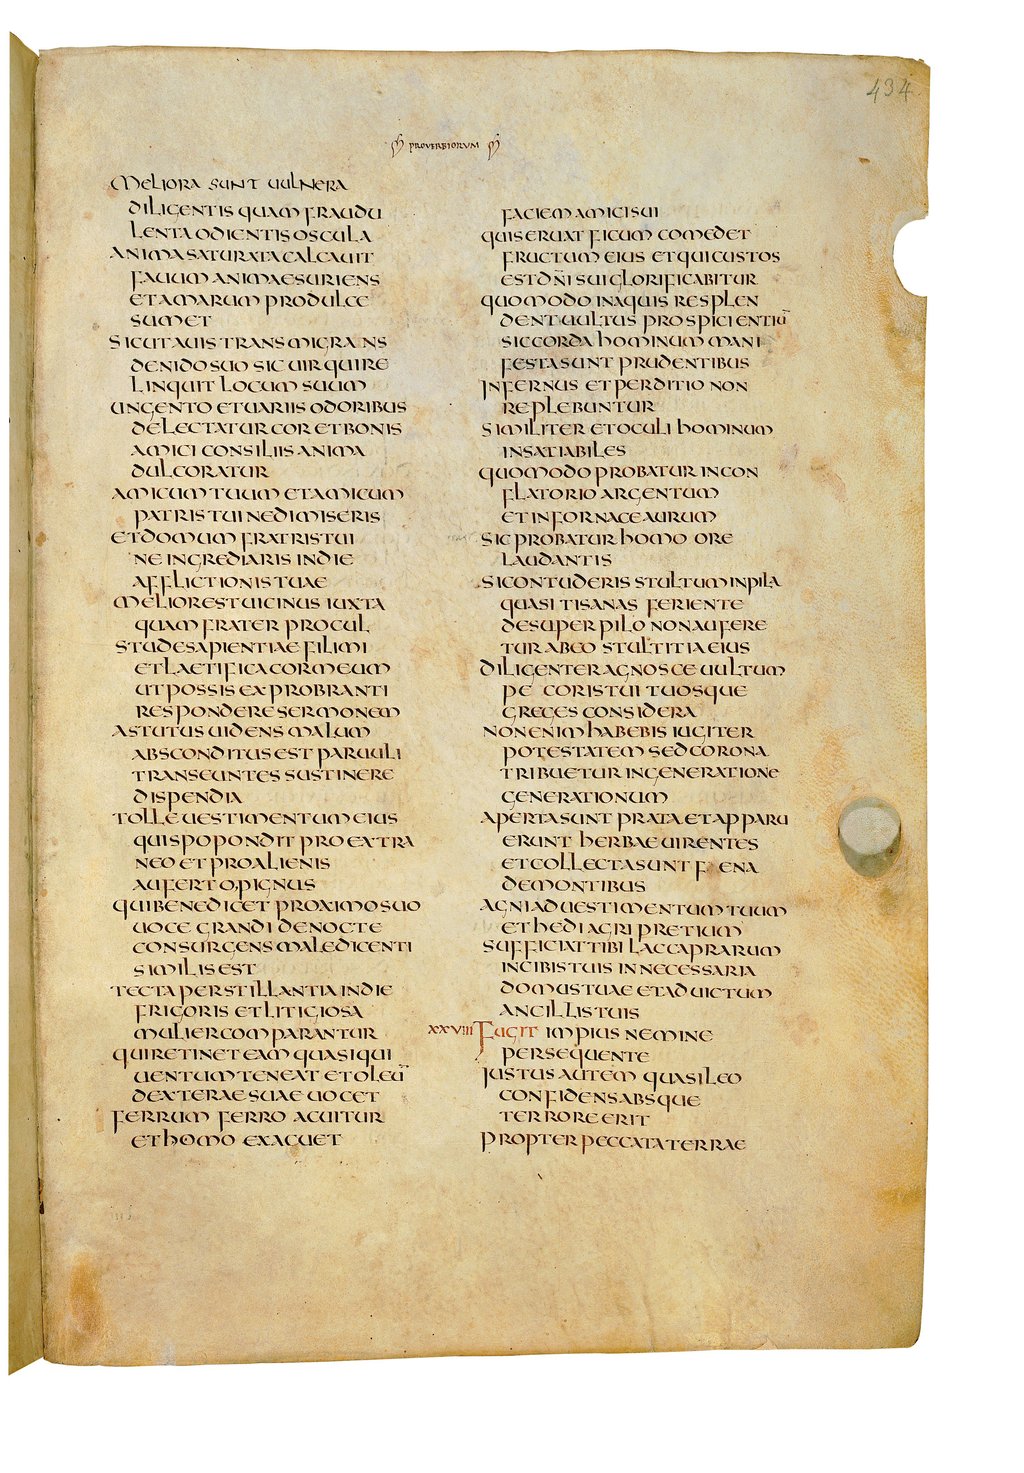 434
PROVERBIORUM
MELIORA SUNT UULNERA
DILIGENTIS QUAM FRAUDU
LENTA ODIENTIS OSCULA
ANIMA SATURATA CALCAUIT
FAUUM ANIMA ESURIENS
ET AMARUM PRO DULCE
SUMET
SICUT AUIS TRANSMIGRANS
DE NIDO SUO SIC UIR QUI RE
LINQUIT LOCUM SUUM
UNGENTO ET UARIIS ODORIBUS
DELECTATUR COR ET BONIS
AMICI CONSILIIS ANIMA
DULCORATUR
AMICUM TUUM ET AMICUM
PATRIS TUI NE DIMISERIS
ET DOMUM FRATRIS TUI
NE INGREDIARIS IN DIE
AFFLICTIONIS TUAE
MELIOR EST UICINUS IUXTA
QUAM FRATER PROCUL
STUDE SAPIENTIAE FILI MI
ET LAETIFICA COR MEUM
UT POSSIS EXPROBRANTI
RESPONDERE SERMONEM
ASTUTUS UIDENS MALUM
ABSCONDITUS EST PARUULI
TRANSEUNTES SUSTINERE
DISPENDIA
TOLLE UESTIMENTUM EIUS
QUI SPOPONDIT PRO EXTRA
NEO ET PRO ALIENIS
AUFERTO PIGNUS
QUI BENEDICET PROXIMO SUO
UOCE GRANDI DE NOCTE
CONSURGENS MALEDICENTI
SIMILIS EST
TECTA PERSTILLANTIA IN DIE
FRIGORIS ET LITIGIOSA
MULIER COMPARANTUR
QUI RETINET EAM QUASI QUI
UENTUM TENEAT ET OLEŪ
DEXTERAE SUAE UOCET
FERRUM FERRO ACUITUR
ET HOMO EXACUET
FACIEM AMICI SUI
QUI SERUAT FICUM COMEDET
FRUCTUM EIUS ET QUI CUSTOS
EST DÑI SUI GLORIFICABITUR
QUOMODO IN AQUIS RESPLEN
DENT UULTUS PROSPICIENTIŪ
SIC CORDA HOMINUM MANI
FESTA SUNT PRUDENTIBUS
INFERNUS ET PERDITIO NON
REPLEBUNTUR
SIMILITER ET OCULI HOMINUM
INSATIABILES
QUOMODO PROBATUR IN CON
FLATORIO ARGENTUM
ET IN FORNACE AURUM
SIC PROBATUR HOMO ORE
LAUDANTIS
SI CONTUDERIS STULTUM IN PILA
QUASI TISANAS FERIENTE
DESUPER PILO NON AUFERE
TUR AB EO STULTITIA EIUS
DILIGENTER AGNOSCE UULTUM
PECORIS TUI TUOSQUE
GREGES CONSIDERA
NON ENIM HABEBIS IUGITER
POTESTATEM SED CORONA
TRIBUETUR IN GENERATIONE
GENERATIONUM
APERTA SUNT PRATA ET APPARU
ERUNT HERBAE UIRENTES
ET COLLECTA SUNT FENA
DE MONTIBUS
AGNI AD UESTIMENTUM TUUM
ET HEDI AGRI PRETIUM
SUFFICIAT TIBI LAC CAPRARUM
IN CIBIS TUIS IN NECESSARIA
DOMUS TUAE ET AD UICTUM
ANCILLIS TUIS
XXVIII FUGIT IMPIUS NEMINE
PERSEQUENTE
IUSTUS AUTEM QUASI LEO
CONFIDENS ABSQUE
TERRORE ERIT
PROPTER PECCATA TERRAE